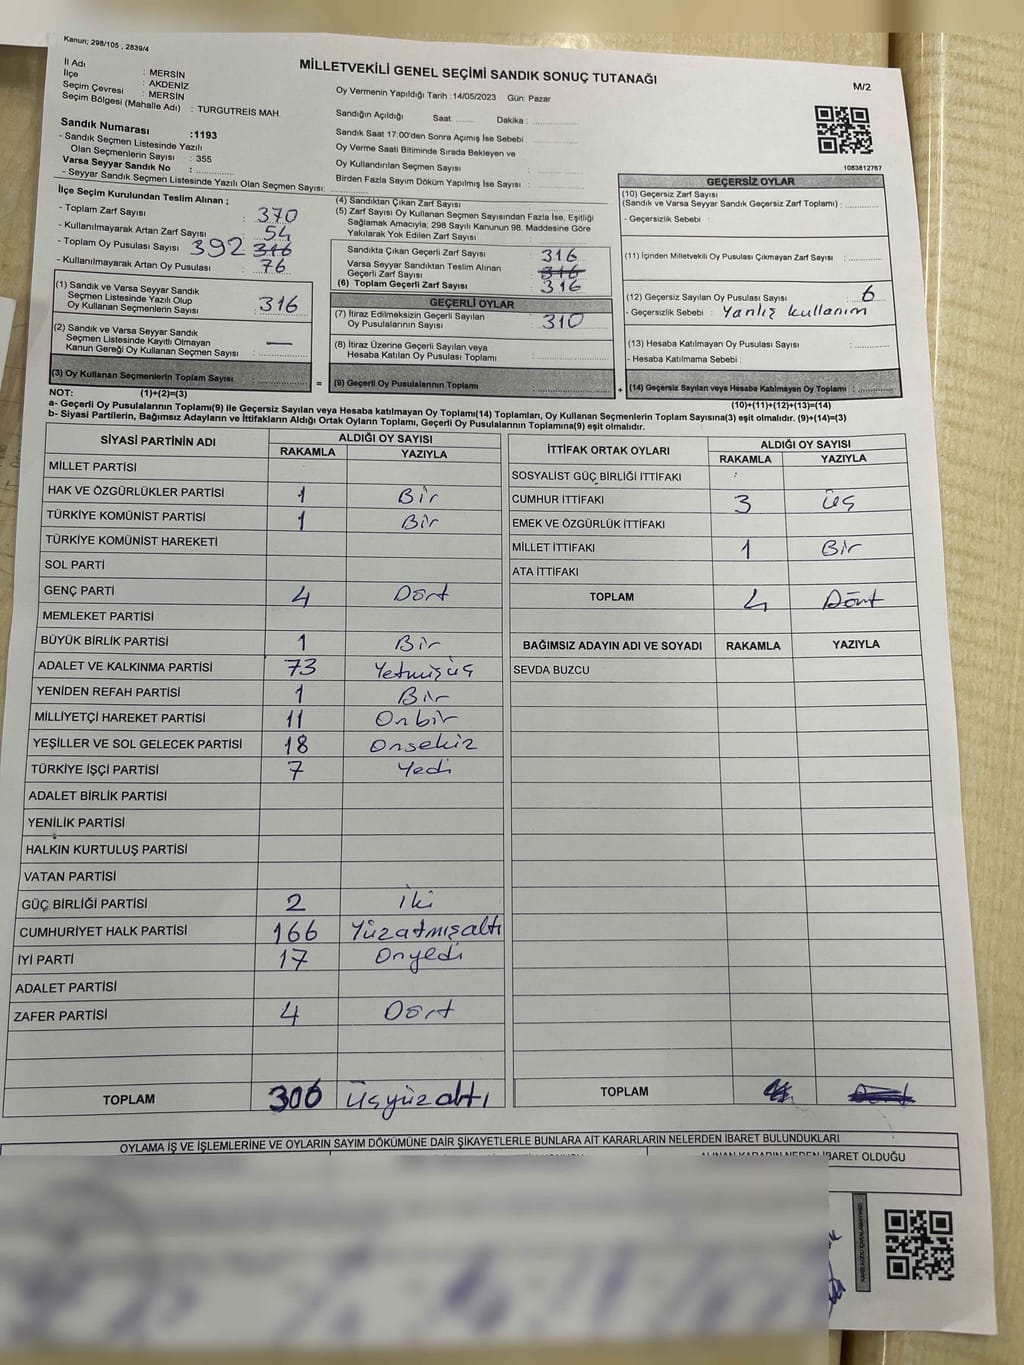 Kanun; 298/105 , 2839/4
MİLLETVEKİLİ GENEL SEÇİMİ SANDIK SONUÇ TUTANAĞI
M/2
İl Adı : MERSİN
İlçe : AKDENİZ
Seçim Çevresi : MERSİN
Seçim Bölgesi (Mahalle Adı) : TURGUTREİS MAH.
Sandık Numarası :1193
- Sandık Seçmen Listesinde Yazılı
Olan Seçmenlerin Sayısı : 355
Varsa Seyyar Sandık No :
- Seyyar Sandık Seçmen Listesinde Yazılı Olan Seçmen Sayısı:
Oy Vermenin Yapıldığı Tarih :14/05/2023 Gün: Pazar
Sandığın Açıldığı Saat Dakika :
Sandık Saat 17:00'den Sonra Açımış İse Sebebi :
Oy Verme Saati Bitiminde Sırada Bekleyen ve
Oy Kullandırılan Seçmen Sayısı :
Birden Fazla Sayım Döküm Yapılmış İse Sayısı :
1083812767
İlçe Seçim Kurulundan Teslim Alınan ;
- Toplam Zarf Sayısı : 370
- Kullanılmayarak Artan Zarf Sayısı : 54
- Toplam Oy Pusulası Sayısı 392 316
- Kullanılmayarak Artan Oy Pusulası : 76
(1) Sandık ve Varsa Seyyar Sandık
Seçmen Listesinde Yazılı Olup
Oy Kullanan Seçmenlerin Sayısı : 316
(2) Sandık ve Varsa Seyyar Sandık
Seçmen Listesinde Kayıtlı Olmayan
Kanun Gereği Oy Kullanan Seçmen Sayısı : —
(3) Oy Kullanan Seçmenlerin Toplam Sayısı :
(4) Sandıktan Çıkan Zarf Sayısı :
(5) Zarf Sayısı Oy Kullanan Seçmen Sayısından Fazla İse, Eşitliği
Sağlamak Amacıyla; 298 Sayılı Kanunun 98. Maddesine Göre
Yakılarak Yok Edilen Zarf Sayısı :
Sandıkta Çıkan Geçerli Zarf Sayısı : 316
Varsa Seyyar Sandıktan Teslim Alınan
Geçerli Zarf Sayısı : 316
(6) Toplam Geçerli Zarf Sayısı : 316
GEÇERLİ OYLAR
(7) İtiraz Edilmeksizin Geçerli Sayılan
Oy Pusulalarının Sayısı : 310
(8) İtiraz Üzerine Geçerli Sayılan veya
Hesaba Katılan Oy Pusulası Toplamı :
= (9) Geçerli Oy Pusulalarının Toplamı :
GEÇERSİZ OYLAR
(10) Geçersiz Zarf Sayısı
(Sandık ve Varsa Seyyar Sandık Geçersiz Zarf Toplamı) :
- Geçersizlik Sebebi :
(11) İçinden Milletvekili Oy Pusulası Çıkmayan Zarf Sayısı :
(12) Geçersiz Sayılan Oy Pusulası Sayısı : 6
- Geçersizlik Sebebi : Yanlış kullanım
(13) Hesaba Katılmayan Oy Pusulası Sayısı :
- Hesaba Katılmama Sebebi :
+ (14) Geçersiz Sayılan veya Hesaba Katılmayan Oy Toplamı :
NOT: (1)+(2)=(3)
(10)+(11)+(12)+(13)=(14)
a- Geçerli Oy Pusulalarının Toplamı(9) ile Geçersiz Sayılan veya Hesaba katılmayan Oy Toplamı(14) Toplamları, Oy Kullanan Seçmenlerin Toplam Sayısına(3) eşit olmalıdır. (9)+(14)=(3)
b- Siyasi Partilerin, Bağımsız Adayların ve İttifakların Aldığı Ortak Oyların Toplamı, Geçerli Oy Pusulalarının Toplamına(9) eşit olmalıdır.
SİYASİ PARTİNİN ADI ALDIĞI OY SAYISI
RAKAMLA YAZIYLA
MİLLET PARTİSİ
HAK VE ÖZGÜRLÜKLER PARTİSİ 1 Bir
TÜRKİYE KOMÜNİST PARTİSİ 1 Bir
TÜRKİYE KOMÜNİST HAREKETİ
SOL PARTİ
GENÇ PARTİ 4 Dört
MEMLEKET PARTİSİ
BÜYÜK BİRLİK PARTİSİ 1 Bir
ADALET VE KALKINMA PARTİSİ 73 Yetmişüç
YENİDEN REFAH PARTİSİ 1 Bir
MİLLİYETÇİ HAREKET PARTİSİ 11 Onbir
YEŞİLLER VE SOL GELECEK PARTİSİ 18 Onsekiz
TÜRKİYE İŞÇİ PARTİSİ 7 Yedi
ADALET BİRLİK PARTİSİ
YENİLİK PARTİSİ
HALKIN KURTULUŞ PARTİSİ
VATAN PARTİSİ
GÜÇ BİRLİĞİ PARTİSİ 2 İki
CUMHURİYET HALK PARTİSİ 166 Yüzatmışaltı
İYİ PARTİ 17 Onyedi
ADALET PARTİSİ
ZAFER PARTİSİ 4 Dört
TOPLAM 306 Üçyüzaltı
İTTİFAK ORTAK OYLARI ALDIĞI OY SAYISI
RAKAMLA YAZIYLA
SOSYALİST GÜÇ BİRLİĞİ İTTİFAKI
CUMHUR İTTİFAKI 3 Üç
EMEK VE ÖZGÜRLÜK İTTİFAKI
MİLLET İTTİFAKI 1 Bir
ATA İTTİFAKI
TOPLAM 4 Dört
BAĞIMSIZ ADAYIN ADI VE SOYADI RAKAMLA YAZIYLA
SEVDA BUZCU
TOPLAM
OYLAMA İŞ VE İŞLEMLERİNE VE OYLARIN SAYIM DÖKÜMÜNE DAİR ŞİKAYETLERLE BUNLARA AİT KARARLARIN NELERDEN İBARET BULUNDUKLARI
ALINAN KARARIN NEDEN İBARET OLDUĞU